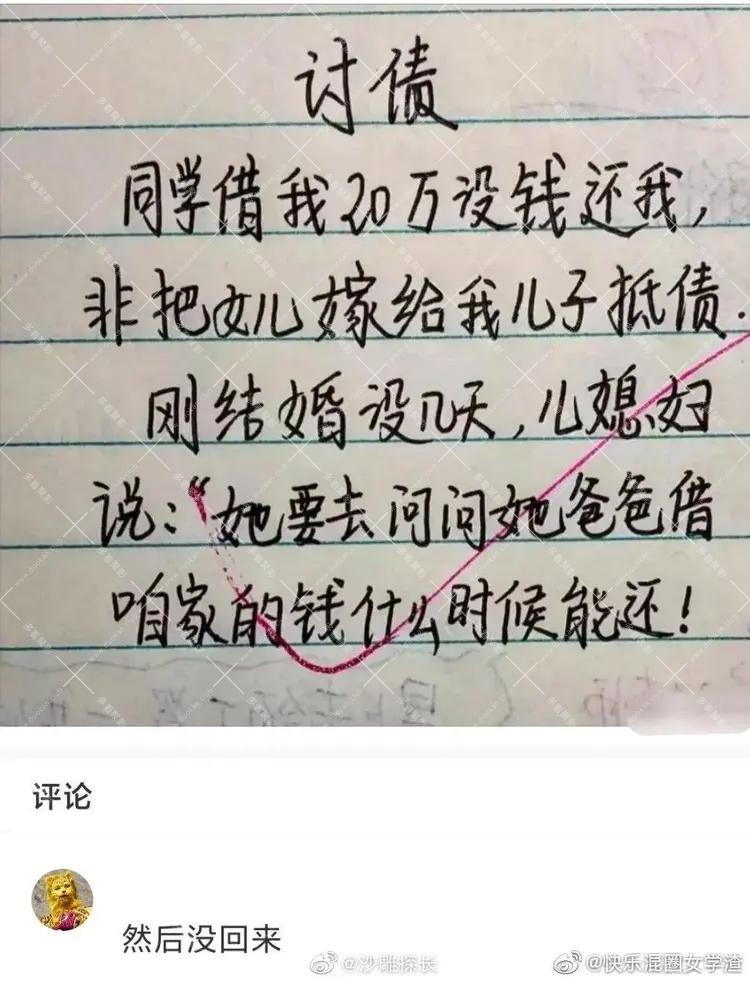 讨债
同学借我20万没钱还我，
非把女儿嫁给我儿子抵债.
刚结婚没几天，儿媳妇
说：“她要去问问她爸爸借
咱家的钱什么时候能还！
评论
然后没回来
@沙雕探长
@快乐混圈女学渣